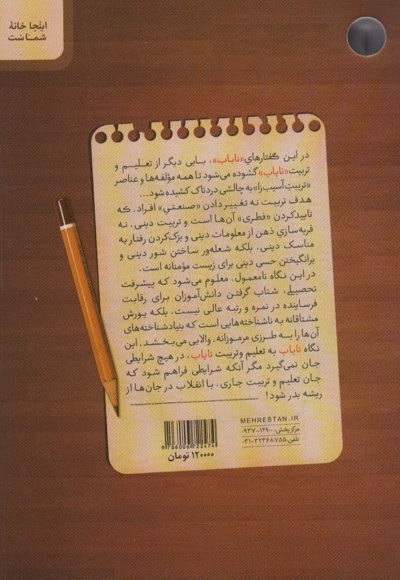 اینجا خانهٔ
شماست
در این گفتارهای «نایاب»، بابی دیگر از تعلیم و
تربیت «نایاب» گشوده می‌شود تا همه مؤلفه‌ها و عناصر
«تربیتِ آسیب‌زا» به چالشی دردناک کشیده شود...
هدف تربیت نه تغییر دادن «صنعتی» افراد، که
تابیدکردن «فطری» آن‌ها است و تربیت دینی، نه
فربه‌سازی ذهن از معلومات دینی و بزک‌کردن رفتار به
مناسک دینی، بلکه شعله‌ور ساختن شور دینی و
برانگیختن حسی دینی برای زیست مؤمنانه است.
در این نگاه نامعمول، معلوم می‌شود که پیشرفت
تحصیلی، شتاب گرفتن دانش‌آموزان برای رقابت
فرساینده در نمره و رتبه عالی نیست، بلکه یورش
مشتاقانه به ناشناخته‌هایی است که بنیاد شناخته‌های
آن‌ها را به طرزی مرموزانه، والایی می‌بخشد. این
نگاه نایاب به تعلیم و تربیت نایاب، در هیچ شرایطی
جان نمی‌گیرد مگر آنکه شرایطی فراهم شود که
جان تعلیم و تربیت جاری، با انقلاب در جان‌ها از
ریشه بدر شود!
MEHRESTAN.IR
مرکز پخش: ۱۲۹۰-۰۹۳۷۰
تلفن: ۳۲۳۶۸۷۵۵-۰۳۱
۱۲۰۰۰۰ تومان